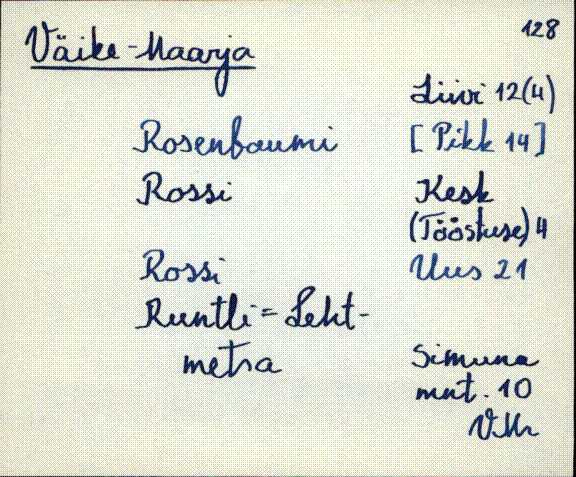 128
Väike-Maarja
Liivi 12(4)
Rosenbaumi [Pikk 14]
Rossi Kesk
(Tööstuse) 4
Rossi Uus 21
Runtli = Leht-
metsa Simuna
mnt. 10